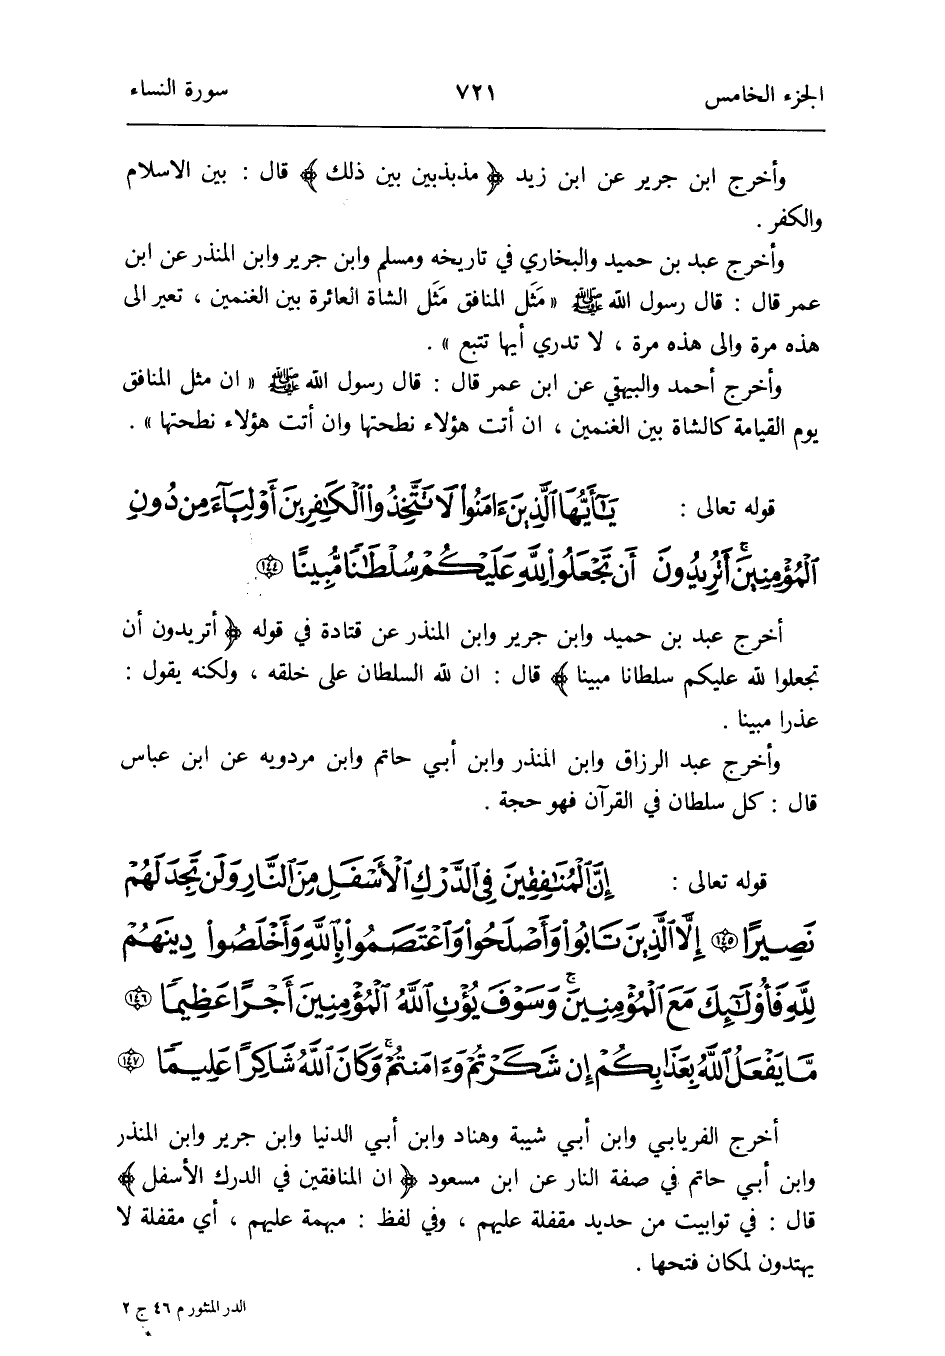 الجزء الخامس ٧٢١ سورة النساء
وأخرج ابن جرير عن ابن زيد ﴿ مذبذبين بين ذلك ﴾ قال : بين الاسلام
والكفر .
وأخرج عبد بن حميد والبخاري في تاريخه ومسلم وابن جرير وابن المنذر عن ابن
عمر قال : قال رسول الله ﷺ « مَثَل المنافق مَثَل الشاة العائرة بين الغنمين ، تعير الى
هذه مرة والى هذه مرة ، لا تدري أيها تتبع » .
وأخرج أحمد والبيهقي عن ابن عمر قال : قال رسول الله ﷺ « ان مثل المنافق
يوم القيامة كالشاة بين الغنمين ، ان أتت هؤلاء نطحتها وان أتت هؤلاء نطحتها » .
قوله تعالى : يَٰٓأَيُّهَا ٱلَّذِينَ ءَامَنُوا۟ لَا تَتَّخِذُوا۟ ٱلْكَٰفِرِينَ أَوْلِيَآءَ مِن دُونِ
ٱلْمُؤْمِنِينَ ۚ أَتُرِيدُونَ أَن تَجْعَلُوا۟ لِلَّهِ عَلَيْكُمْ سُلْطَٰنًا مُّبِينًا ﴿١٤٤﴾
أخرج عبد بن حميد وابن جرير وابن المنذر عن قتادة في قوله ﴿ أتريدون أن
تجعلوا لله عليكم سلطانا مبينا ﴾ قال : ان لله السلطان على خلقه ، ولكنه يقول :
عذرا مبينا .
وأخرج عبد الرزاق وابن المنذر وابن أبي حاتم وابن مردويه عن ابن عباس
قال : كل سلطان في القرآن فهو حجة .
قوله تعالى : إِنَّ ٱلْمُنَٰفِقِينَ فِى ٱلدَّرْكِ ٱلْأَسْفَلِ مِنَ ٱلنَّارِ وَلَن تَجِدَ لَهُمْ
نَصِيرًا ﴿١٤٥﴾ إِلَّا ٱلَّذِينَ تَابُوا۟ وَأَصْلَحُوا۟ وَٱعْتَصَمُوا۟ بِٱللَّهِ وَأَخْلَصُوا۟ دِينَهُمْ
لِلَّهِ فَأُو۟لَٰٓئِكَ مَعَ ٱلْمُؤْمِنِينَ ۖ وَسَوْفَ يُؤْتِ ٱللَّهُ ٱلْمُؤْمِنِينَ أَجْرًا عَظِيمًا ﴿١٤٦﴾
مَّا يَفْعَلُ ٱللَّهُ بِعَذَابِكُمْ إِن شَكَرْتُمْ وَءَامَنتُمْ ۚ وَكَانَ ٱللَّهُ شَاكِرًا عَلِيمًا ﴿١٤٧﴾
أخرج الفريابي وابن أبي شيبة وهناد وابن أبي الدنيا وابن جرير وابن المنذر
وابن أبي حاتم في صفة النار عن ابن مسعود ﴿ ان المنافقين في الدرك الأسفل ﴾
قال : في توابيت من حديد مقفلة عليهم ، وفي لفظ : مبهمة عليهم ، أي مقفلة لا
يهتدون لمكان فتحها .
الدر المنثور م ٤٦ ج ٢